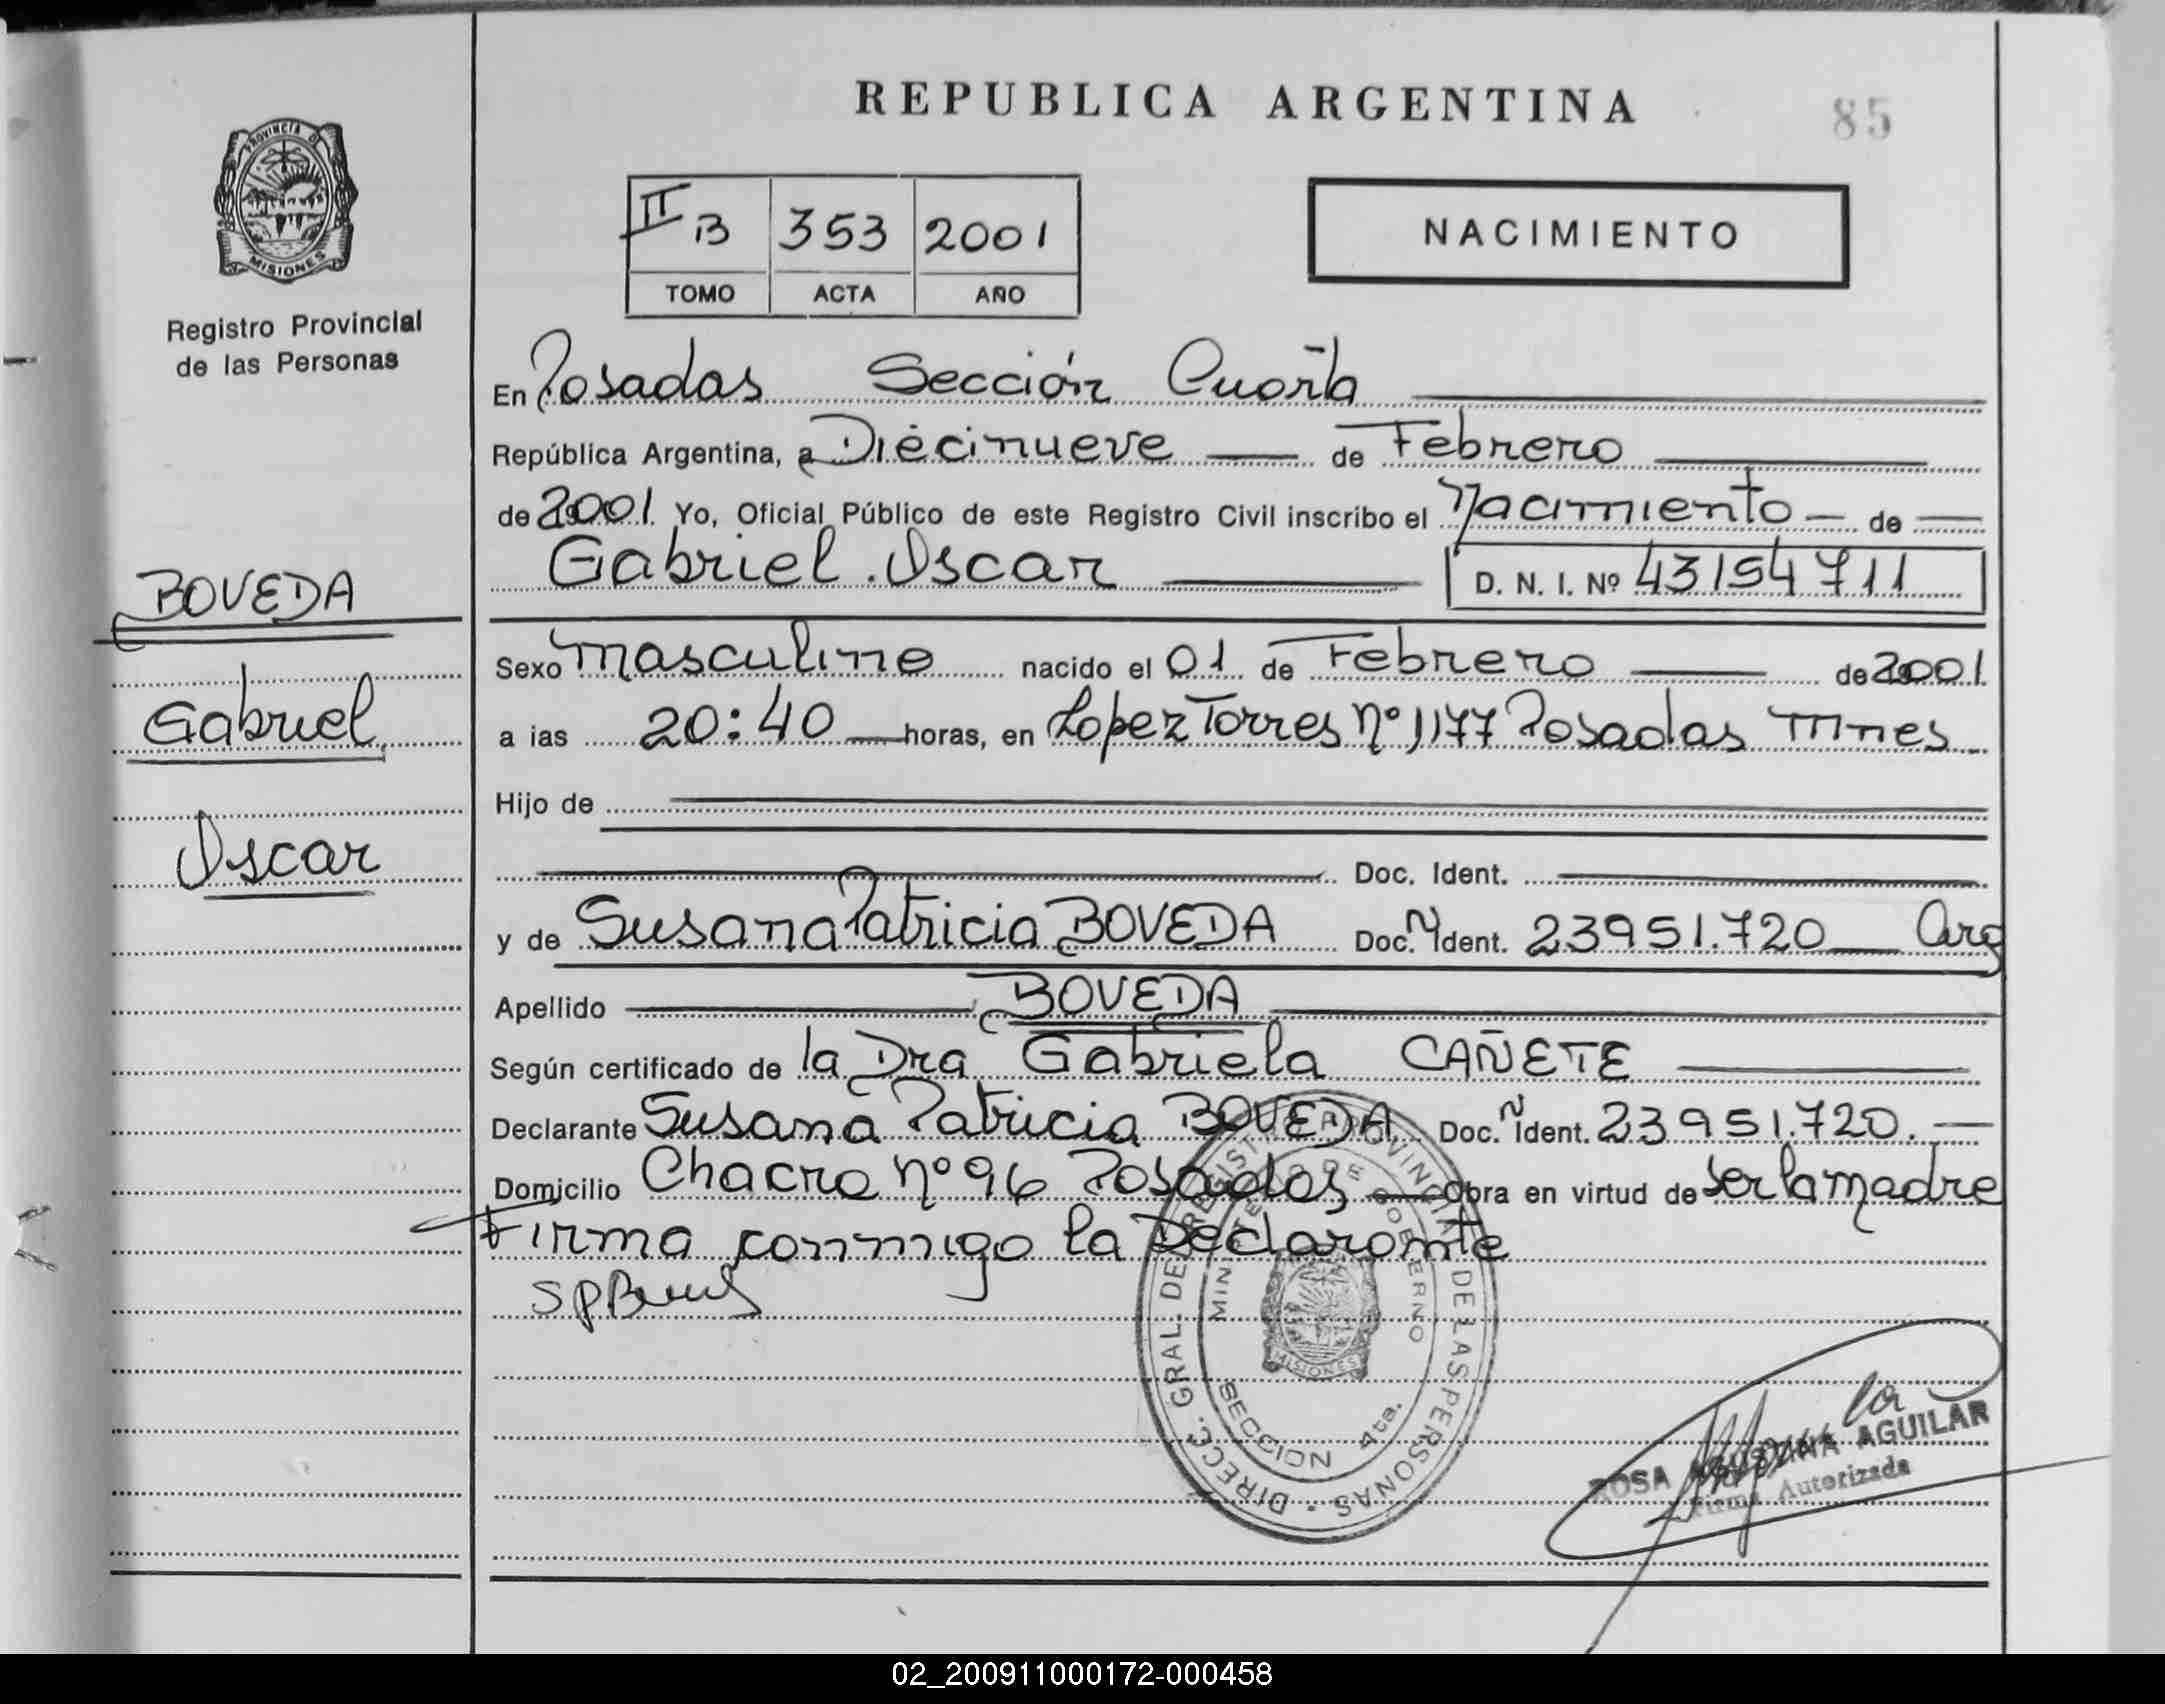 REPUBLICA ARGENTINA
85
PROVINCIA D
MISIONES
Registro Provincial
de las Personas
II B 353 2001
TOMO ACTA AÑO
NACIMIENTO
En Posadas Sección Cuarta
República Argentina, a Diecinueve de Febrero
de 2001 Yo, Oficial Público de este Registro Civil inscribo el Nacimiento de
Gabriel Oscar D. N. I. Nº 43154711
BOVEDA
Gabriel
Oscar
Sexo masculino nacido el 01 de Febrero de 2001
a las 20:40 horas, en Lopez Torres Nº 1177 Posadas Mnes
Hijo de
Doc. Ident.
y de Susana Patricia BOVEDA Doc. N Ident. 23951.720 Arg
Apellido BOVEDA
Según certificado de la Dra Gabriela CAÑETE
Declarante Susana Patricia BOVEDA Doc. N Ident. 23951.720.
Domicilio Chacra nº 96 Posadas Obra en virtud de ser la madre
Firma conmigo la Declarante
DIRECC. GRAL. DEL REGISTRO PROVINCIAL DE LAS PERSONAS
MINISTERIO DE GOBIERNO
MISIONES
SECCION 4ta.
ROSA AGUILAR
Firma Autorizada
02_200911000172-000458